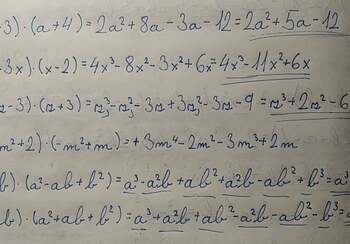 -3)·(a+4)=2a²+8a-3a-12=2a²+5a-12
-3x)·(x-2)=4x³-8x²-3x²+6x=4x³-11x²+6x
-3)·(z+3)=z³-z²-3z+3z²-3z-9=z³+2z²-6
m²+2)·(-m²+m)=+3m⁴-2m²-3m³+2m
b)·(a²-ab+b²)=a³-a²b+ab²+a²b-ab²+b³=a³
b)·(a²+ab+b²)=a³+a²b+ab²-a²b-ab²-b³=